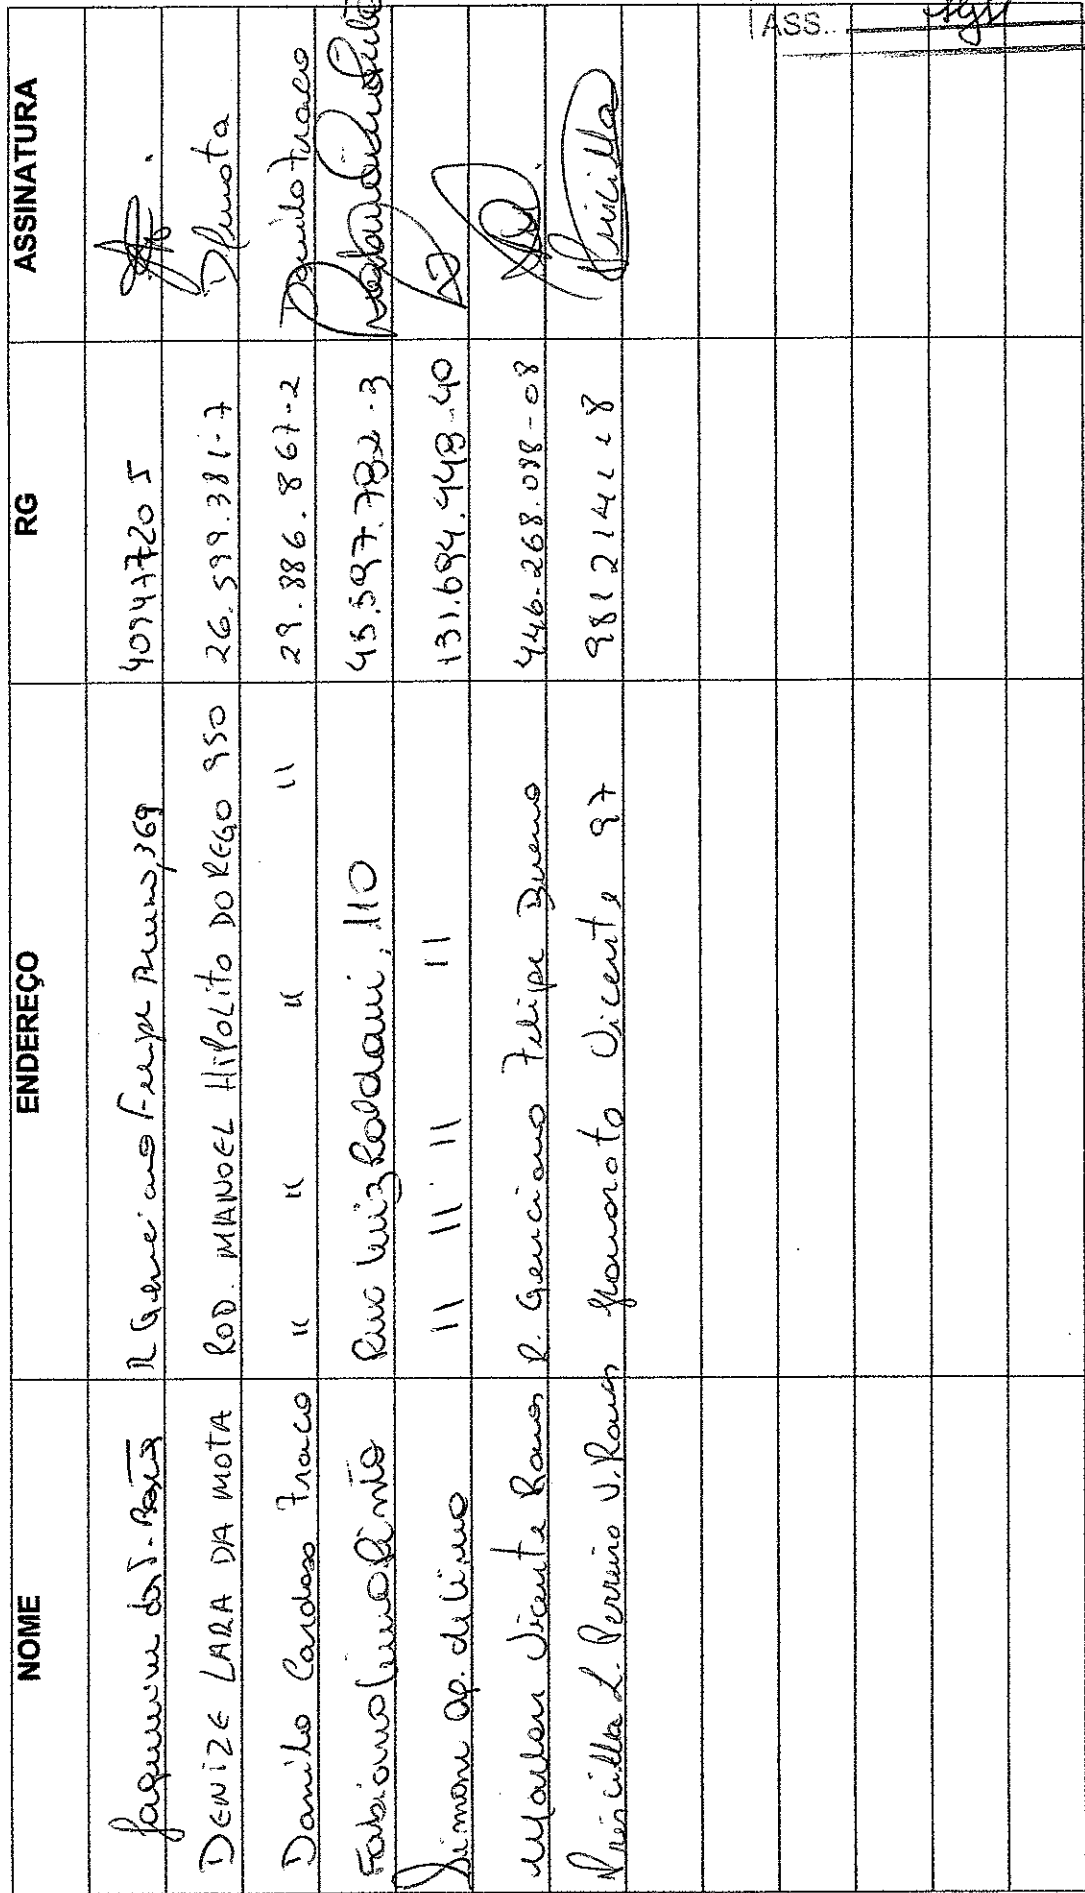 NOME ENDEREÇO RG ASSINATURA
R. Genciano Felipe Bueno, 369 40947720 5
DENIZE LARA DA MOTA ROD. MANOEL HIPOLITO DO REGO 950 26.599.381-7 DLmota
Danilo Cardoso Fraco " " " " 29.886.867-2 Danilo Fraco
Fabiano Lima Pinto Rua Luiz Roldani, 110 45.597.782-3
Simone ap. de Lima " " " " 131.694.448-40
Marlon Vicente Ramos R. Genciano Felipe Bueno 446.268.098-08
Priscilla L. Perreira V. Ramos Vicente 97 Priscilla
ASS.